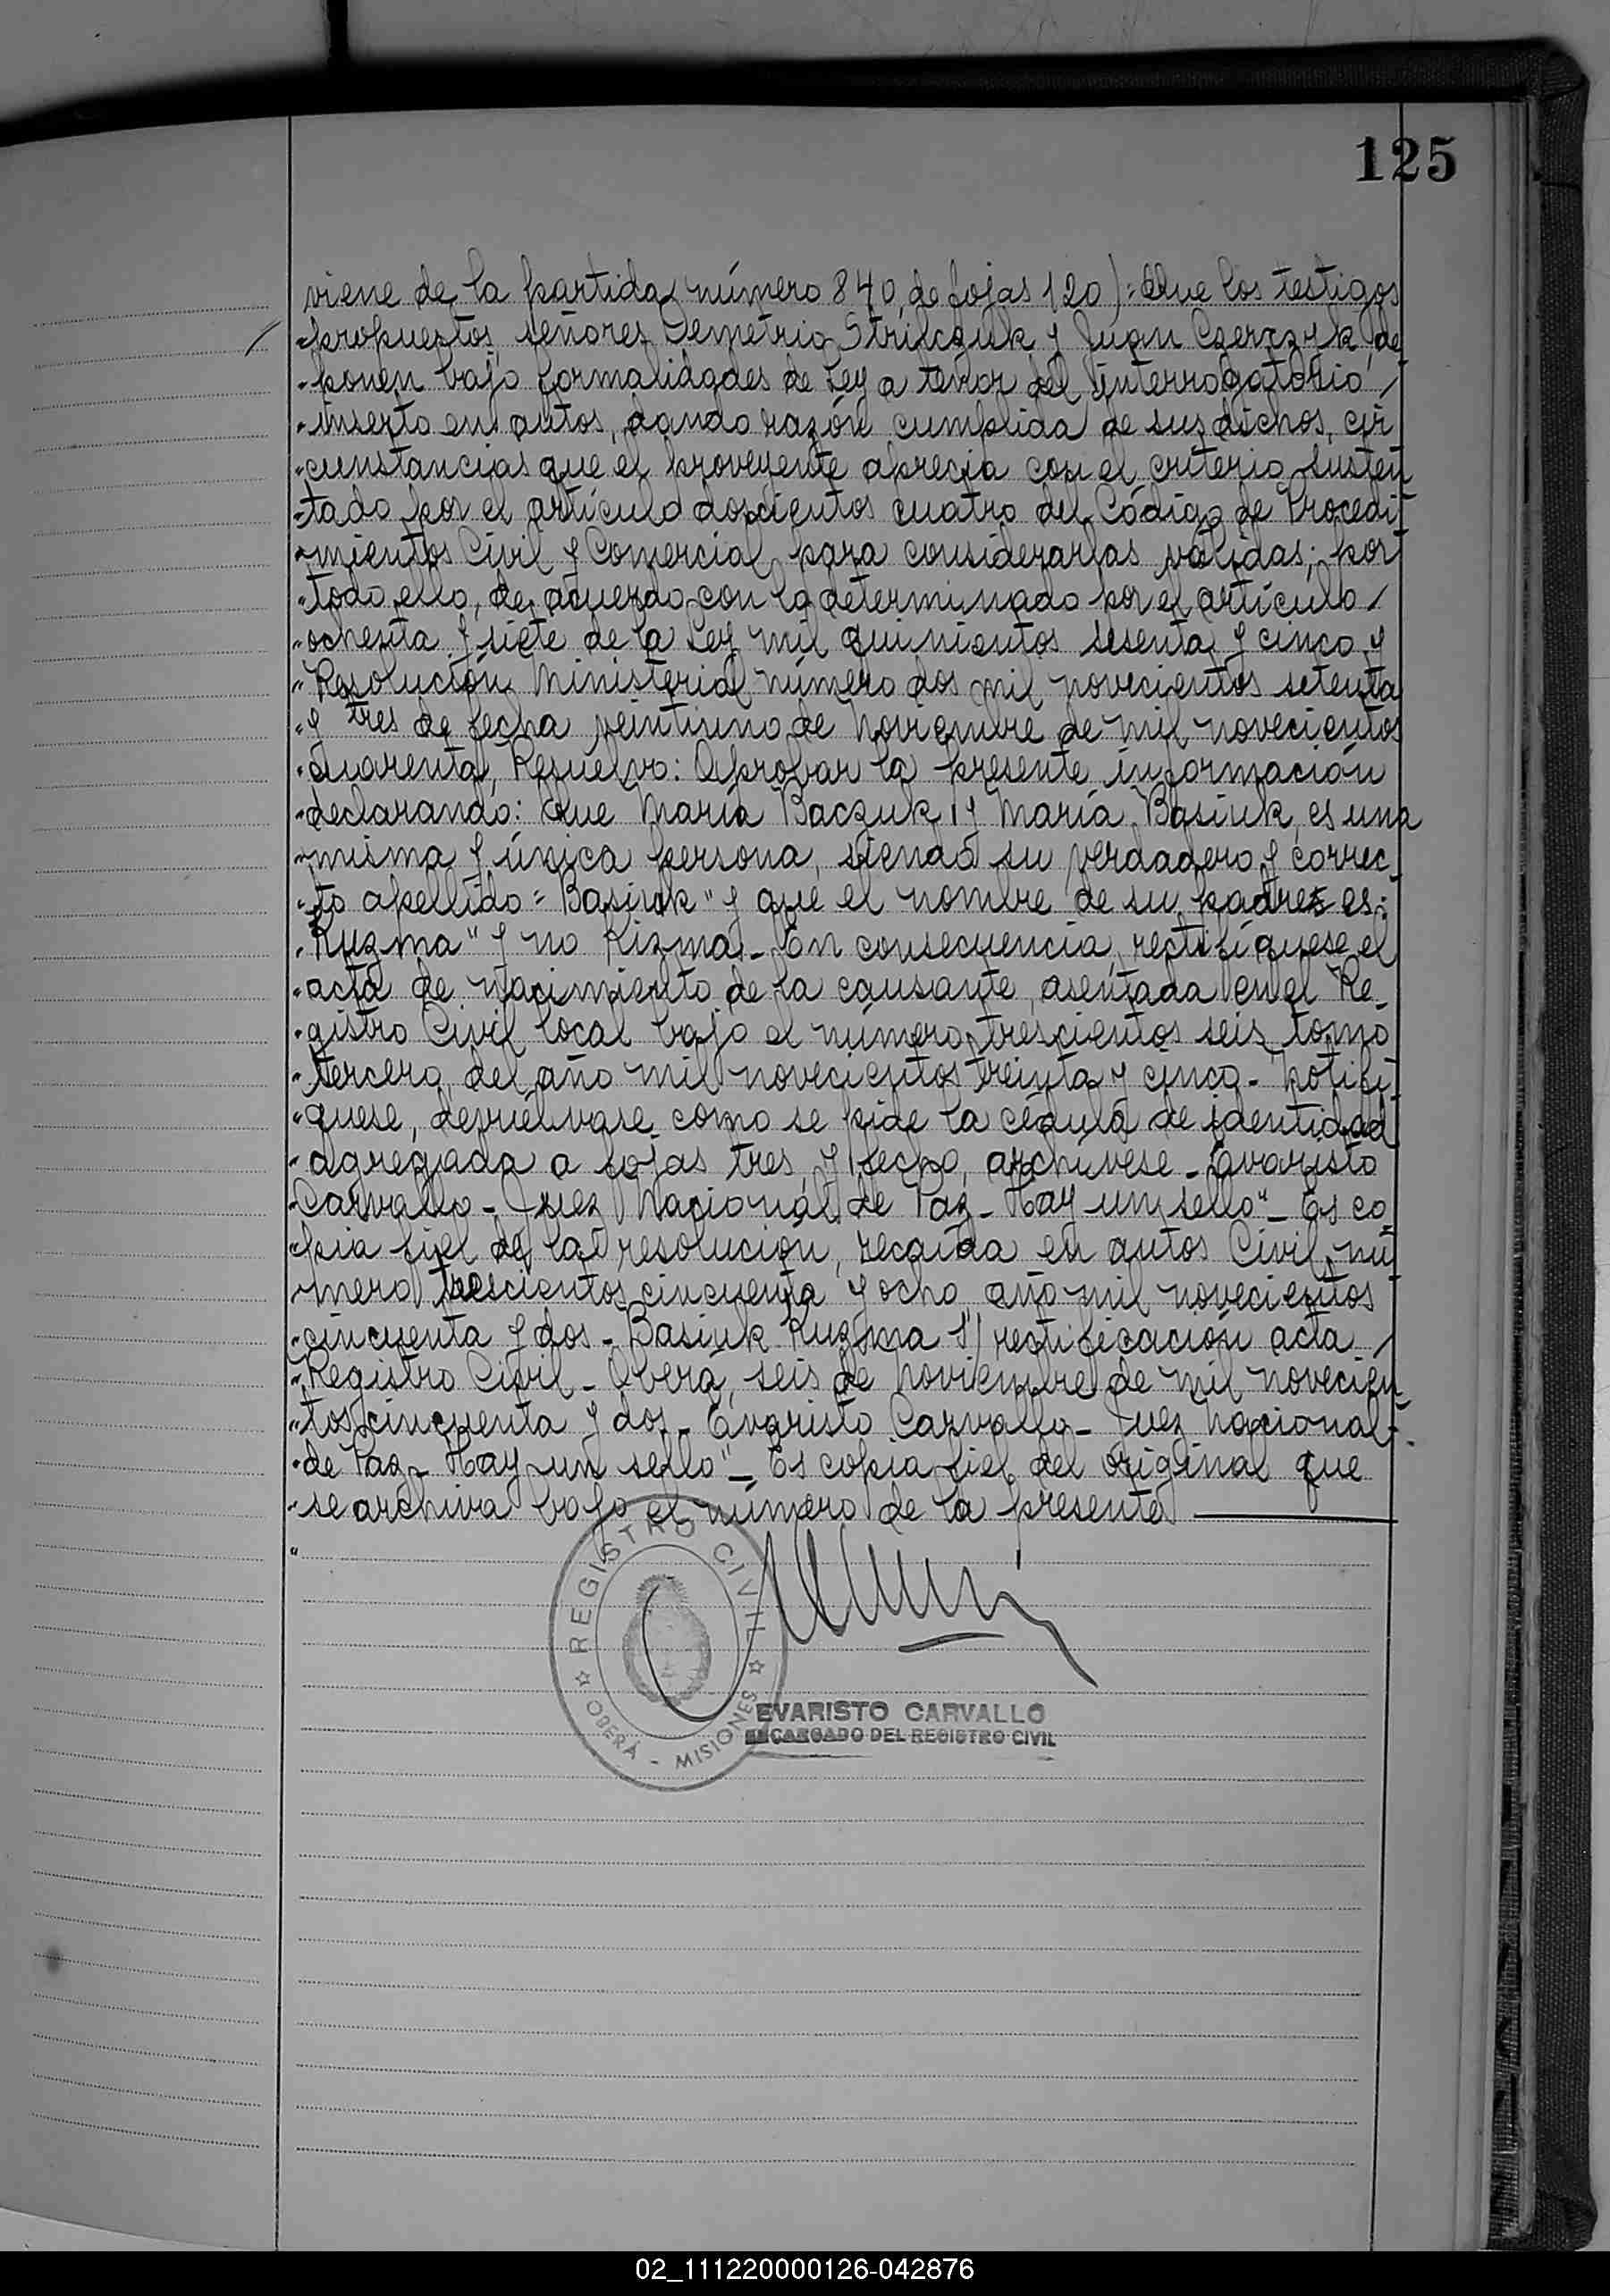 125
viene de la partida número 840 de fojas 120): Que los testigos
"propuestos, señores Demetrio Strilczuk y Juan Czerzyk, de
"ponen bajo formalidades de Ley a tenor del interrogatorio /
"inserto en autos, dando razón cumplida de sus dichos, cir
"cunstancias que el proveyente aprecia con el criterio susten
"tado por el artículo doscientos cuatro del Código de Procedi
"mientos Civil y Comercial para considerarlas válidas; por
"todo ello, de acuerdo con lo determinado por el artículo /
"ochenta y siete de la Ley mil quinientos sesenta y cinco y
"Resolución Ministerial número dos mil novecientos setenta
"y tres de fecha veintiuno de noviembre de mil novecientos
"cuarenta, Resuelvo: Aprobar la presente información
"declarando: Que María Baczuk y María Basiuk, es una
"misma y única persona, siendo su verdadero y correc-
"to apellido = Basiuk" y que el nombre de su padre es:
"Kuzma" y no Kizma.- En consecuencia, rectifíquese el
"acta de nacimiento de la causante, asentada en el Re-
"gistro Civil local bajo el número trescientos seis, tomo
"tercero, del año mil novecientos treinta y cinco.- Notifí
"quese, devuélvase como se pide la cédula de identidad
"agregada a fojas tres, y fecho, archívese.- Evaristo
"Carvallo - Juez Nacional de Paz - Hay un sello" - Es co-
"pia fiel de la resolución, recaída en autos Civil, nú
"mero trescientos cincuenta y ocho, año mil novecientos
"cincuenta y dos - Basiuk Kuzma s/ rectificación acta /
"Registro Civil - Oberá, seis de noviembre de mil novecien-
"tos cincuenta y dos - Evaristo Carvallo - Juez Nacional -
"de Paz - Hay un sello" - Es copia fiel del original que
"se archiva bajo el número de la presente
"
REGISTRO CIVIL
OBERÁ - MISIONES
EVARISTO CARVALLO
ENCARGADO DEL REGISTRO CIVIL
02_111220000126-042876